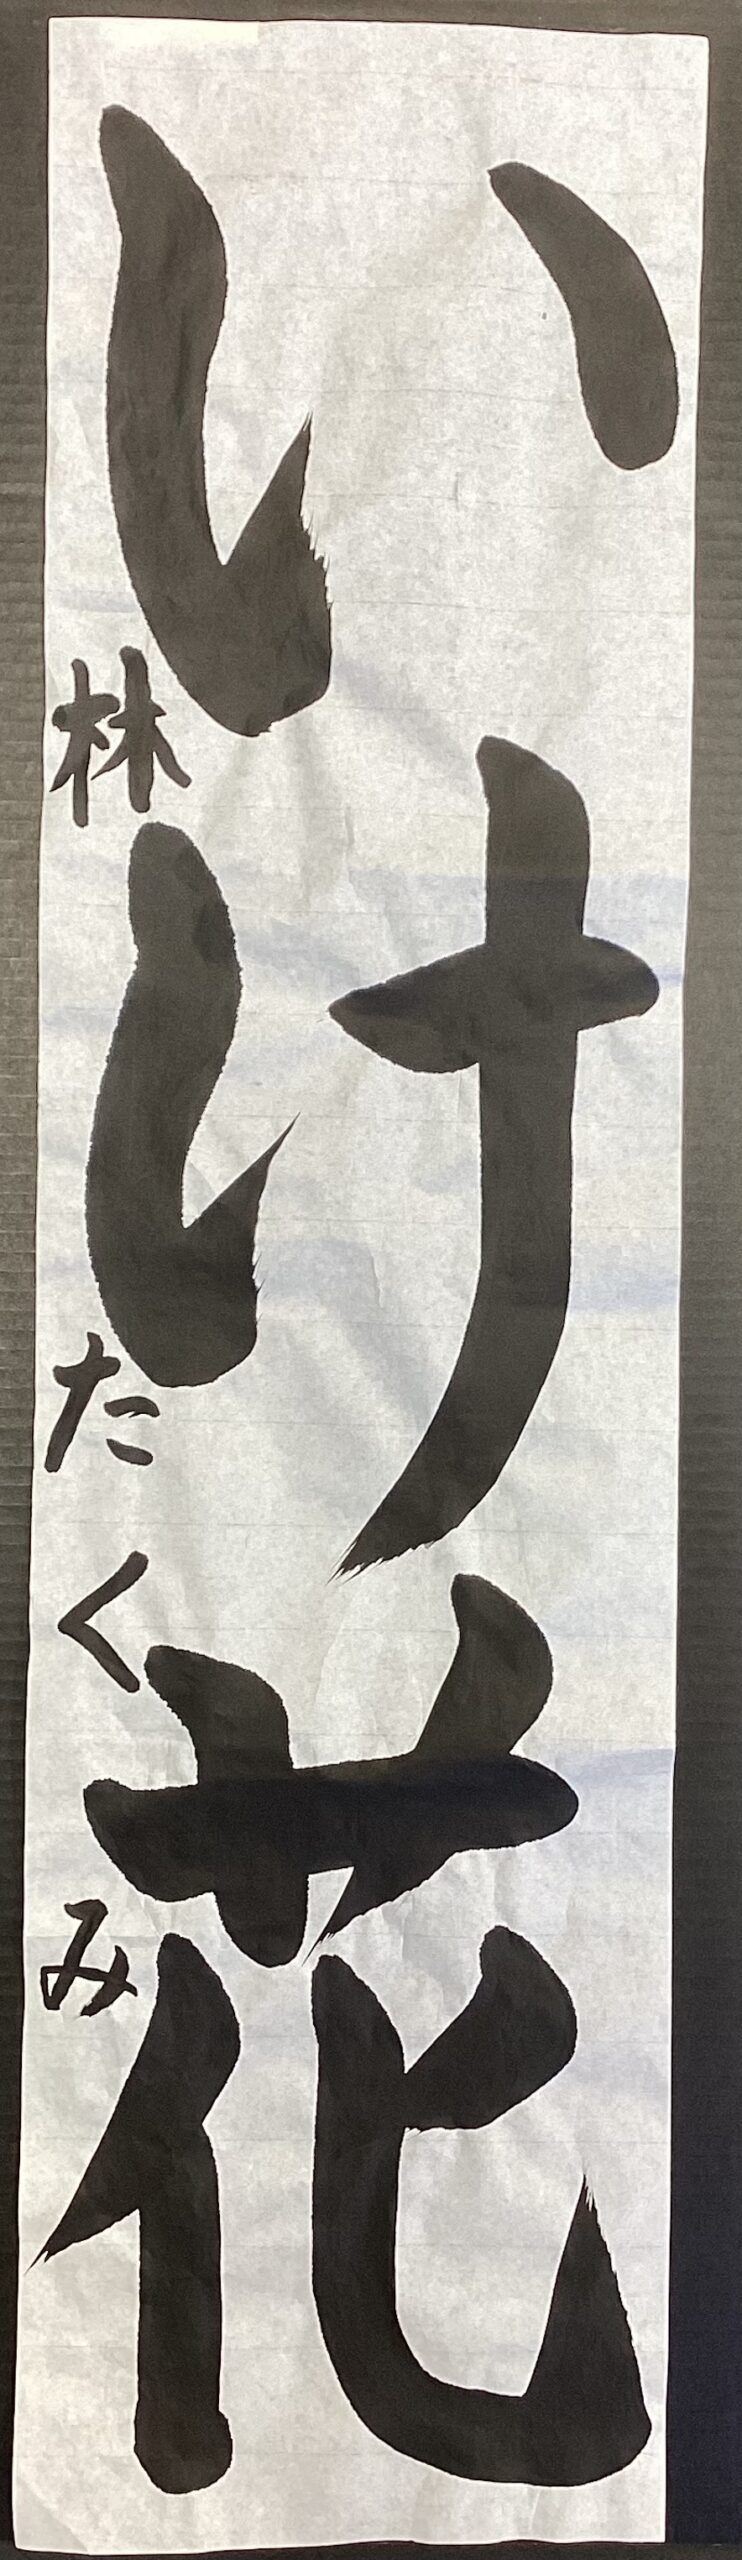 いけ花
林たくみ